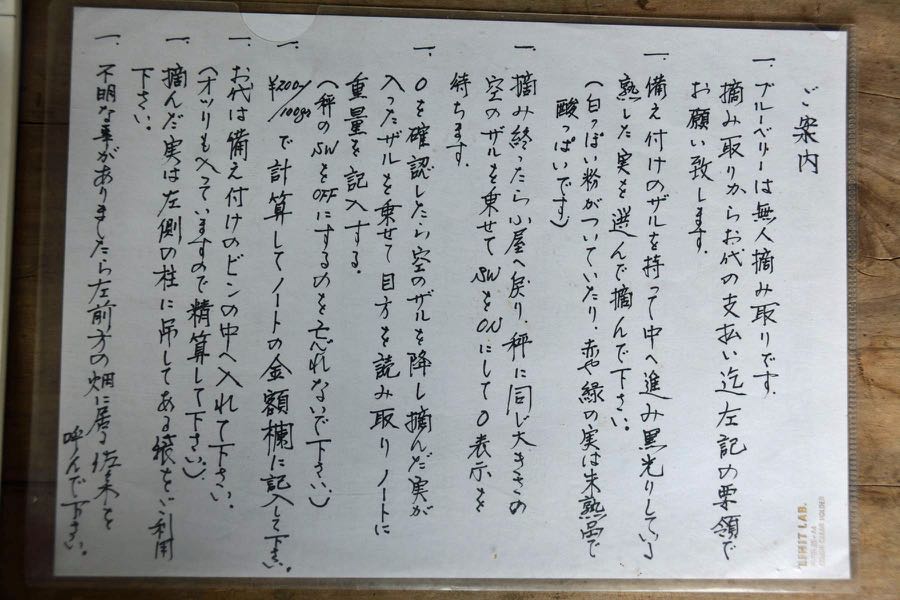 ご案内
一、ブルーベリーは無人摘み取りです。
摘み取りからお代の支払い迄左記の要領で
お願い致します。
一、備え付けのザルを持って中へ進み黒光りしている
熟した実を選んで摘んで下さい。
(白っぽい粉がついていたり、赤や緑の実は未熟品で
酸っぱいです)
一、摘み終ったら小屋へ戻り、秤に同じ大きさの
空のザルを乗せてSWをONにして0表示を
待ちます。
一、0を確認したら空のザルを降し摘んだ実が
入ったザルを乗せて目方を読み取りノートに
重量を記入する。
(秤のSWをOFFにするのを忘れないで下さい)
一、¥200/100gr で計算してノートの金額欄に記入して下さい。
一、お代は備え付けのビンの中へ入れて下さい。
(オツリも入っていますので精算して下さい)
一、摘んだ実は左側の柱に吊してある袋をご利用
下さい。
一、不明な事がありましたら左前方の畑に居る佐来を
呼んで下さい。
LIHIT LAB.